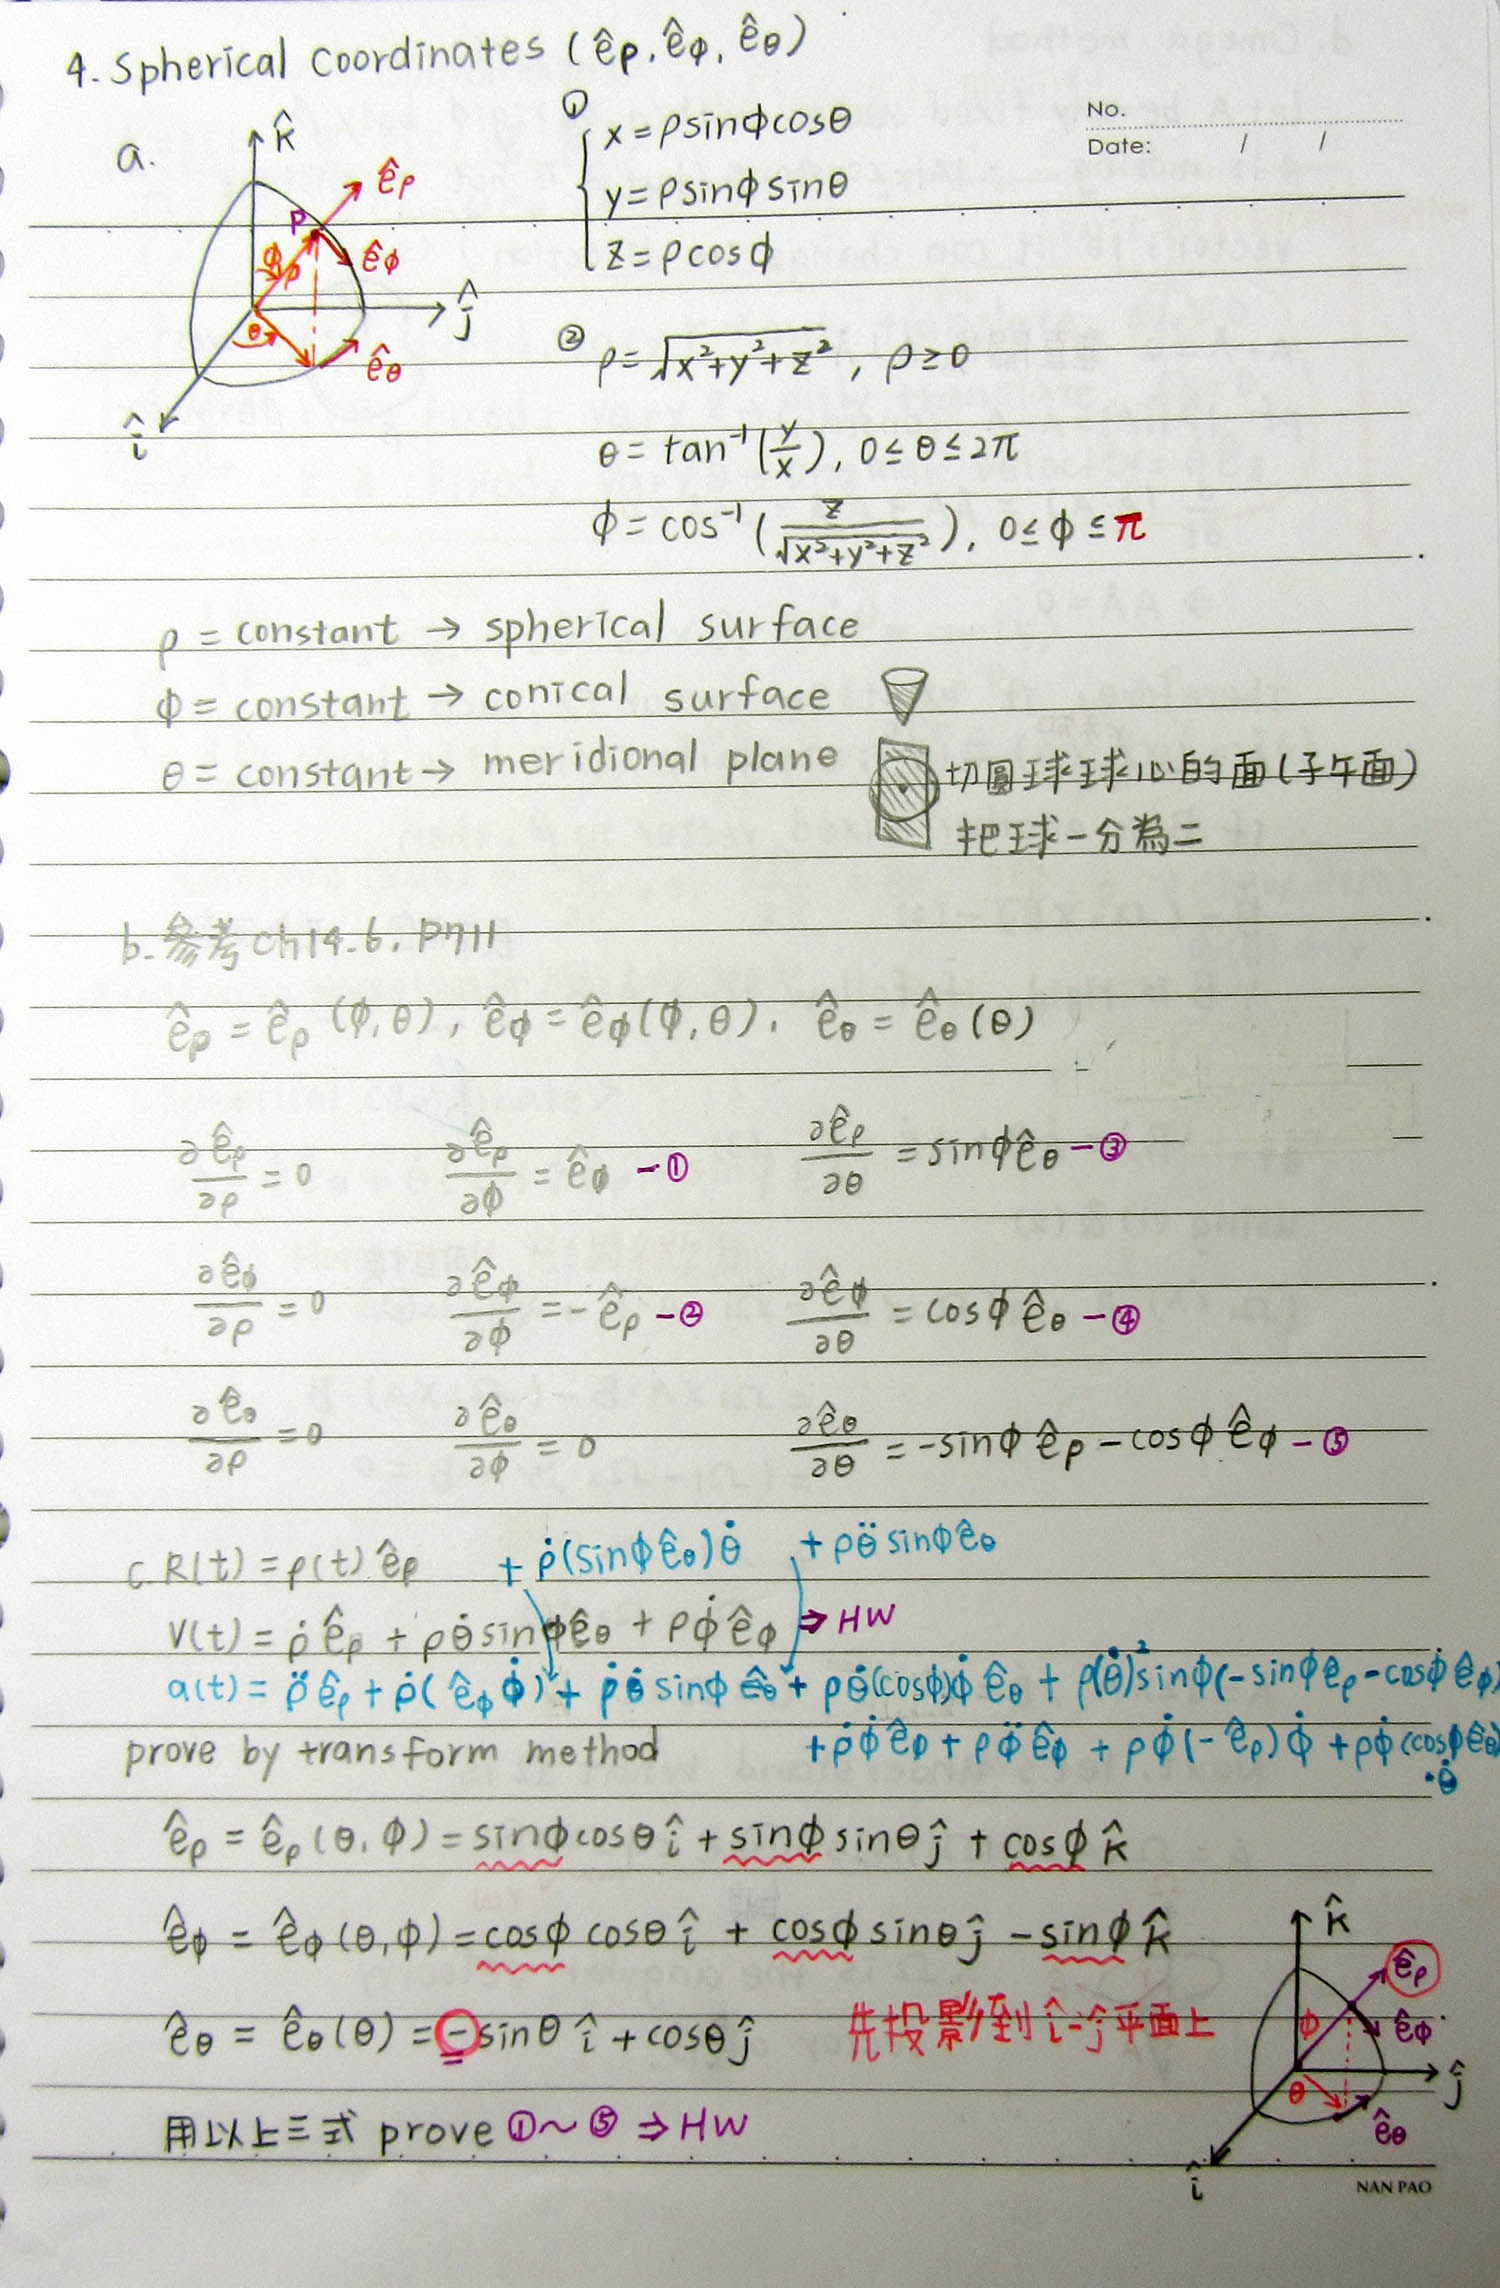 4. Spherical Coordinates (êρ, êϕ, êθ)
No.
Date: / /
a.
k̂
êρ
P
ϕ
ρ
êϕ
ĵ
θ
êθ
î
① x = ρsinϕcosθ
y = ρsinϕsinθ
z = ρcosϕ
② ρ = √(x²+y²+z²), ρ ≥ 0
θ = tan⁻¹(y/x), 0 ≤ θ ≤ 2π
ϕ = cos⁻¹(z/√(x²+y²+z²)), 0 ≤ ϕ ≤ π
ρ = constant → spherical surface
ϕ = constant → conical surface
θ = constant → meridional plane 切圓球球心的面(子午面)
把球一分為二
b. 參考 ch14.6. P711
êρ = êρ(ϕ,θ), êϕ = êϕ(ϕ,θ), êθ = êθ(θ)
∂êρ/∂ρ = 0 ∂êρ/∂ϕ = êϕ -① ∂êρ/∂θ = sinϕêθ -③
∂êϕ/∂ρ = 0 ∂êϕ/∂ϕ = -êρ -② ∂êϕ/∂θ = cosϕêθ -④
∂êθ/∂ρ = 0 ∂êθ/∂ϕ = 0 ∂êθ/∂θ = -sinϕêρ - cosϕêϕ -⑤
c. R(t) = ρ(t)êρ + ρ̇(sinϕêθ)θ̇ + ρθ̈sinϕêθ
V(t) = ρ̇êρ + ρθ̇sinϕêθ + ρϕ̇êϕ ⇒ HW
a(t) = ρ̈êρ + ρ̇(êϕϕ̇) + ρ̇θ̇sinϕêθ + ρθ̇(cosϕ)ϕ̇êθ + ρ(θ̇)²sinϕ(-sinϕêρ - cosϕêϕ)
+ ρ̇ϕ̇êϕ + ρϕ̈êϕ + ρϕ̇(-êρ)ϕ̇ + ρϕ̇(cosϕêθ)
·θ̇
prove by transform method
êρ = êρ(θ,ϕ) = sinϕcosθî + sinϕsinθĵ + cosϕk̂
êϕ = êϕ(θ,ϕ) = cosϕcosθî + cosϕsinθĵ - sinϕk̂
êθ = êθ(θ) = -sinθî + cosθĵ 先投影到î-ĵ平面上
用以上三式 prove ①~⑤ ⇒ HW
k̂
êρ
ϕ
êϕ
ĵ
θ
êθ
î
NAN PAO